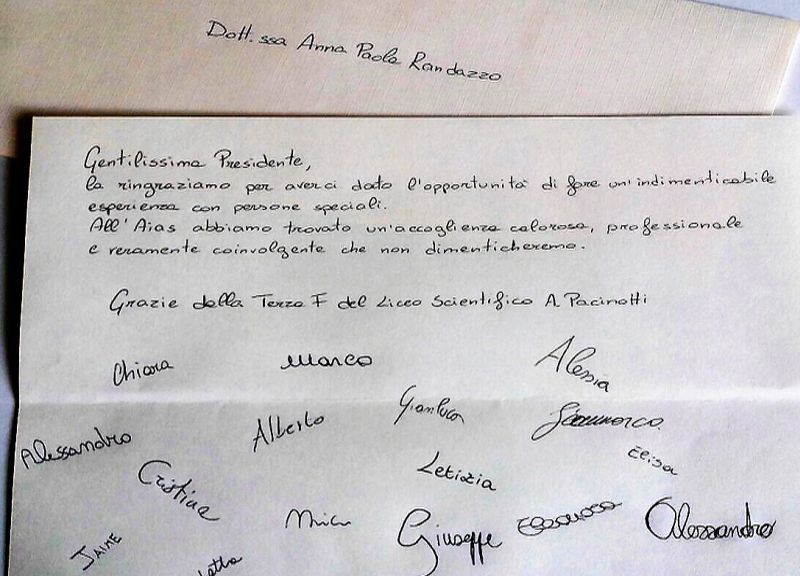 Dott.ssa Anna Paola Randazzo
Gentilissima Presidente,
la ringraziamo per averci dato l'opportunità di fare un'indimenticabile
esperienza con persone speciali.
All'Aias abbiamo trovato un'accoglienza calorosa, professionale
e veramente coinvolgente che non dimenticheremo.
Grazie dalla Terza F del Liceo Scientifico A. Pacinotti
Chiara Marco Alessia
Alessandro Alberto Gianluca Gianmarco
Cristina Letizia Elisa
JAIME Giuseppe Eleonora Alessandro